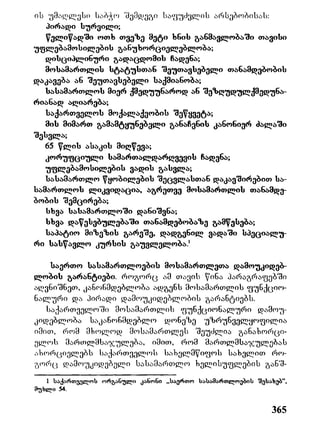 ის უმაღლესი საბჭო შემდეგი საფუძვლის არსებობისას:
პირადი სურვილი;
წელიწადში ოთხ თვეზე მეტი ხნის განმავლობაში თავისი
უფლებამოსილების განუხორციელებლობა;
დისციპლინური გადაცდომის ჩადენა;
მოსამართლის სტატუსთან შეუთავსებელი თანამდებობის
დაკავება ან შეუთავსებელი საქმიანობა;
სასამართლოს მიერ ქმედუუნაროდ ან შეზღუდულქმედუნა-
რიანად აღიარება;
საქართველოს მოქალაქეობის შეწყვეტა;
მის მიმართ გამამტყუნებელი განაჩენის კანონიერ ძალაში
შესვლა;
65 წლის ასაკის მიღწევა;
კორუფციული სამართალდარღვევის ჩადენა;
უფლებამოსილების ვადის გასვლა;
სასამართლო წყობილების შეცვლასთან დაკავშირებით სა-
სამართლოს ლიკვიდაცია, აგრეთვე მოსამართლის თანამდე-
ბობის შემცირება;
სხვა სასამართლოში დანიშვნა;
სხვა დაწესებულებაში თანამდებობაზე გამწესება;
საპატიო მიზეზის გარეშე, დადგენილ ვადაში სპეციალუ-
რი სასწავლო კურსის გაუვლელობა.¹
საერთო სასამართლოების მოსამართლეთა დამოუკიდებ-
ლობის გარანტიები. როგორც ამ თავის წინა პარაგრაფებში
აღვნიშნეთ, კანონმდებლობა ადგენს მოსამართლის ფუნქციო-
ნალური და პირადი დამოუკიდებლობის გარანტიებს.
საქართველოში მოსამართლის ფუნქციონალური დამოუ-
კიდებლობა საკანონმდებლო დონეზე უზრუნველყოფილია
იმით, რომ მხოლოდ მოსამართლეს შეუძლია განახორცი-
ელოს მართლმსაჯულება, იმით, რომ მართლმსაჯულებას
ახორციელებს საქართველოს სახელმწიფოს სახელით რო-
გორც დამოუკიდებელი სასამართლო ხელისუფლების განშ-
1 საქართველოს ორგანული კანონი „საერთო სასამართლოების შესახებ“,
მუხლი 54.
365